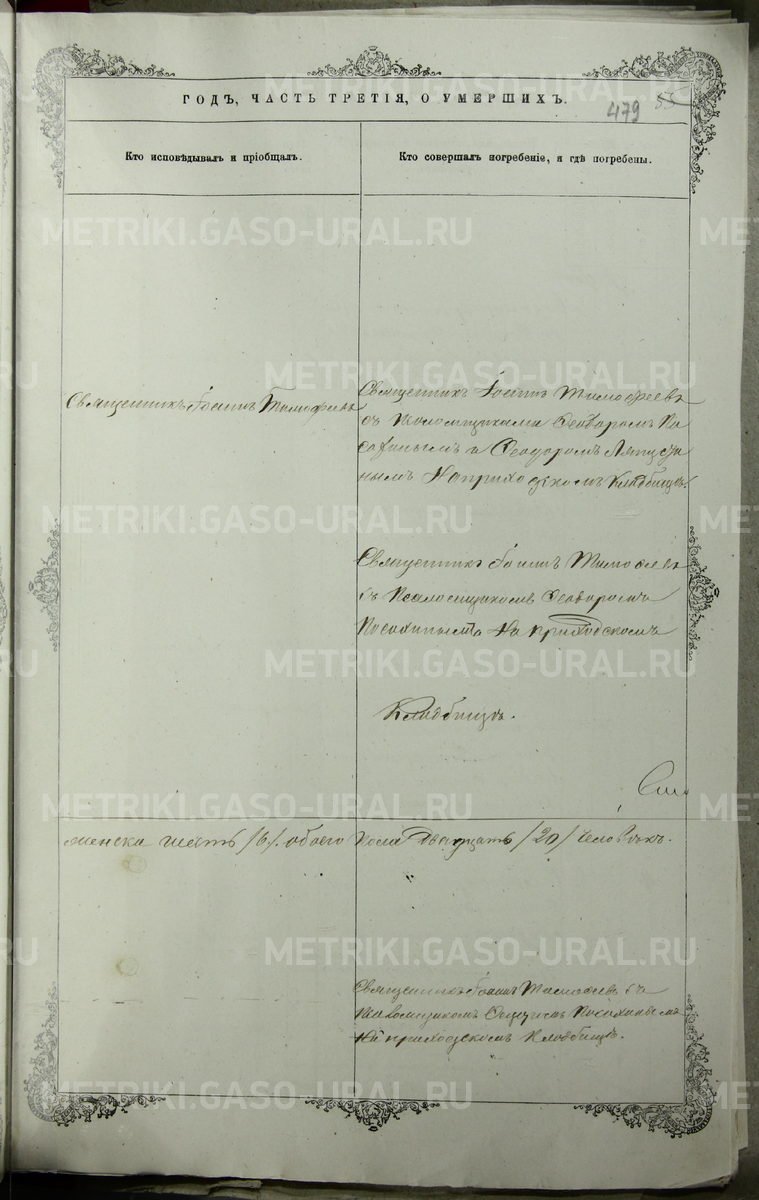 ГОДЪ, ЧАСТЬ ТРЕТІЯ, О УМЕРШИХЪ.
479 55
Кто исповѣдывалъ и пріобщалъ.
Кто совершалъ погребеніе, и гдѣ погребены.
Священникъ Іоаннъ Тимофеевъ
Священникъ Іоаннъ Тимофеевъ
съ Псаломщиками Ѳеодоромъ По
сохинымъ и Ѳеодоромъ
нымъ На приходскомъ Кладбищѣ.
Священникъ Іоаннъ Тимофеевъ
съ Псаломщикомъ Ѳеодоромъ
Посохинымъ На приходскомъ
Кладбищѣ.
женска шесть /6/. обоего пола двадцать /20/ человѣкъ.
Священникъ Іоаннъ Тимофеевъ съ
Псаломщикомъ Посохинымъ
На приходскомъ Кладбищѣ.
METRIKI.GASO-URAL.RU